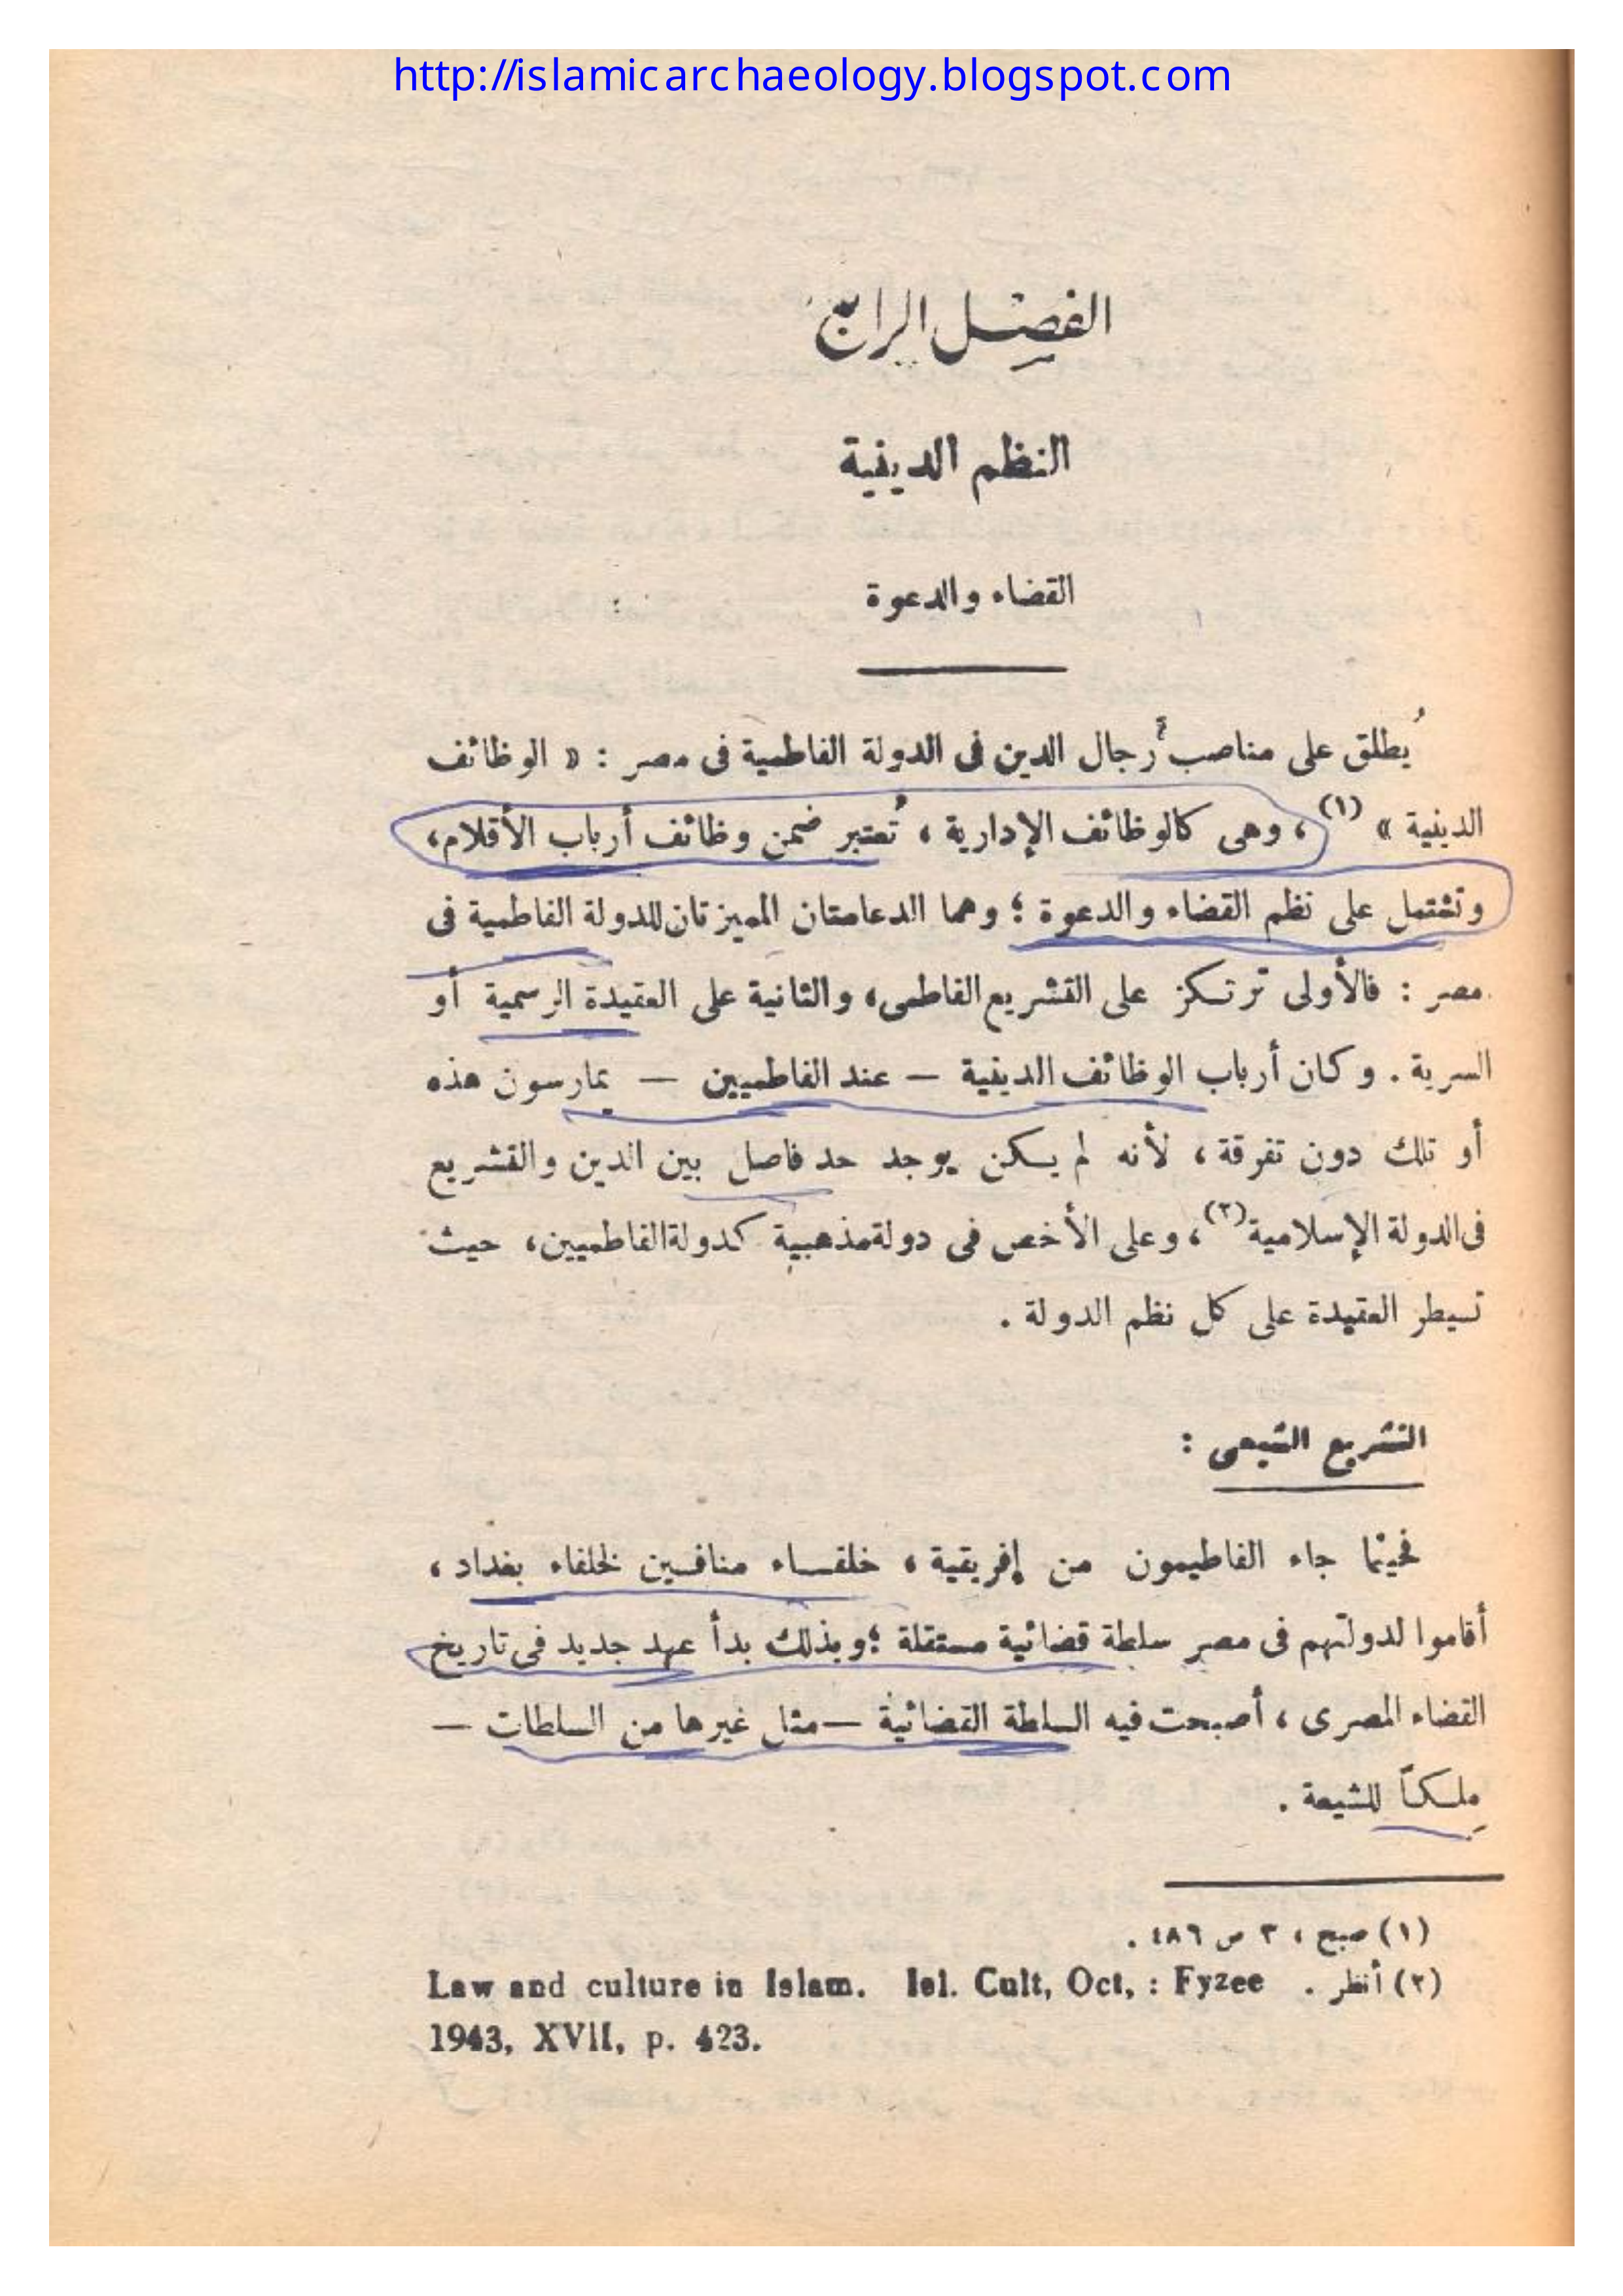 http://islamicarchaeology.blogspot.com
الفصل الرابع
النظم الدينية
القضاء والدعوة
يُطلق على مناصب رجال الدين فى الدولة الفاطمية فى مصر : « الوظائف
الدينية » (١) ، وهى كالوظائف الإدارية ، تُعتبر ضمن وظائف أرباب الأقلام،
وتشتمل على نظم القضاء والدعوة ؛ وهما الدعامتان المميزتان للدولة الفاطمية فى
مصر : فالأولى ترتكز على التشريع الفاطمى، والثانية على العقيدة الرسمية أو
السرية . وكان أرباب الوظائف الدينية – عند الفاطميين – يمارسون هذه
أو تلك دون تفرقة ، لأنه لم يكن يوجد حد فاصل بين الدين والتشريع
فى الدولة الإسلامية (٢) ، وعلى الأخص فى دولة مذهبية كدولة الفاطميين، حيث
تسيطر العقيدة على كل نظم الدولة .
التشريع الشيعى :
فحينما جاء الفاطيمون من إفريقية ، خلفاء منافسين لخلفاء بغداد ،
أقاموا لدولتهم فى مصر سلطة قضائية مستقلة ؛ وبذلك بدأ عهد جديد فى تاريخ
القضاء المصرى ، أصبحت فيه السلطة القضائية – مثل غيرها من السلطات –
مِلكاً للشيعة .
(١) صبح ، ٣ ص ٤٨٦ .
(٢) أنظر . Law and culture in Islam. Isl. Cult, Oct, : Fyzee
1943, XVII, p. 423.